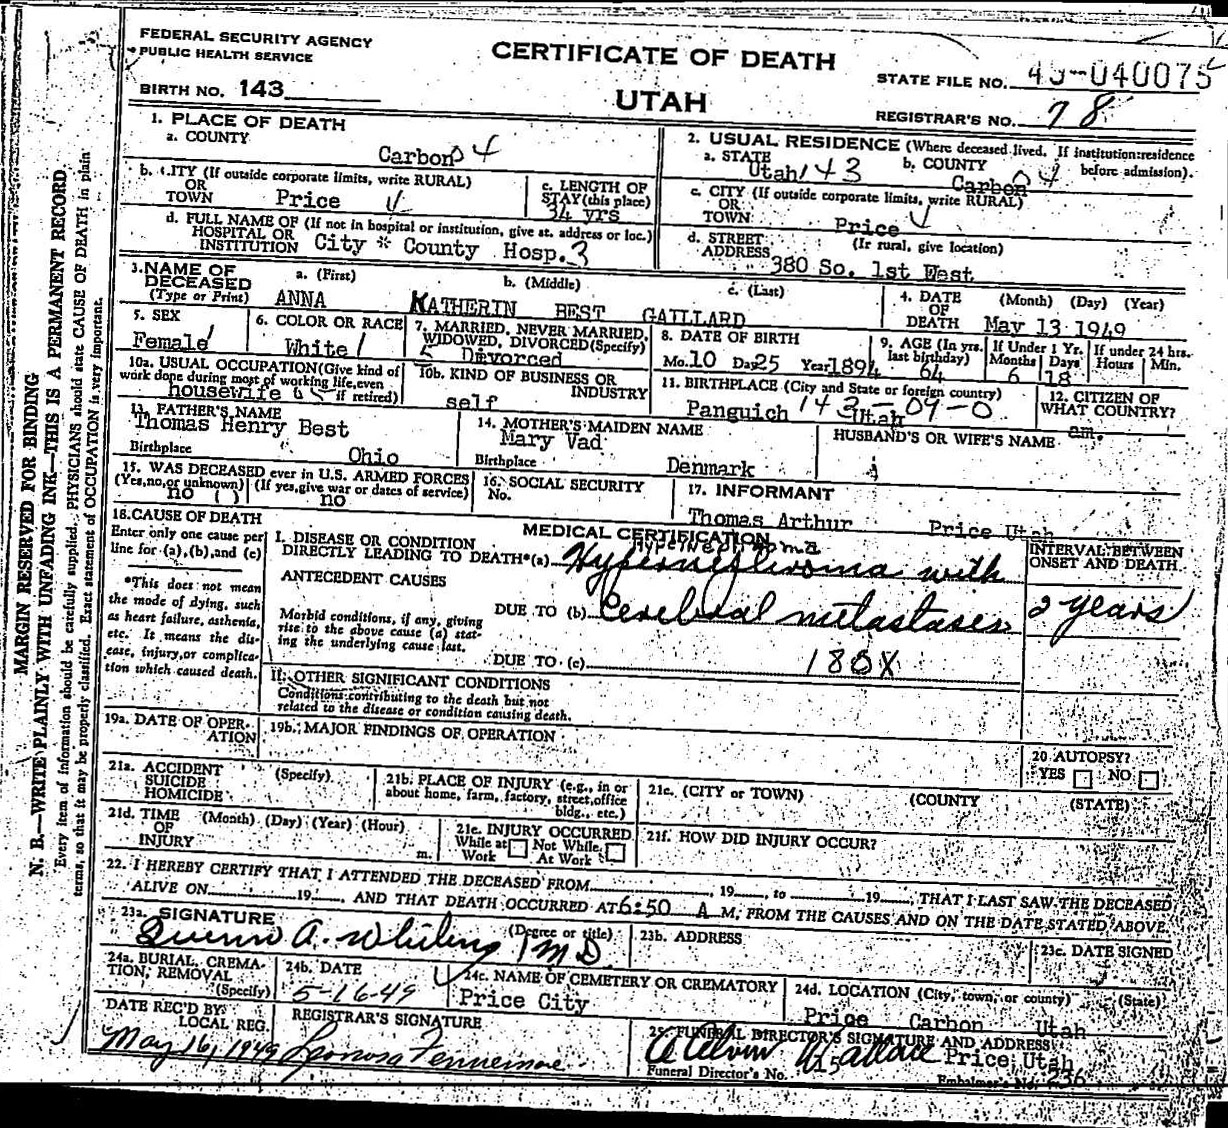 FEDERAL SECURITY AGENCY
PUBLIC HEALTH SERVICE
BIRTH NO. 143
CERTIFICATE OF DEATH
UTAH
STATE FILE NO. 49-040075
REGISTRAR'S NO. 78
MARGIN RESERVED FOR BINDING
N. B.—WRITE PLAINLY WITH UNFADING INK—THIS IS A PERMANENT RECORD.
Every item of information should be carefully supplied. PHYSICIANS should state CAUSE OF DEATH in plain
terms, so that it may be properly classified. Exact statement of OCCUPATION is very important.
1. PLACE OF DEATH
a. COUNTY
Carbon 04
b. CITY (If outside corporate limits, write RURAL)
OR
TOWN Price
c. LENGTH OF
STAY (this place)
34 yrs
d. FULL NAME OF (If not in hospital or institution, give st. address or loc.)
HOSPITAL OR
INSTITUTION City & County Hosp. 3
2. USUAL RESIDENCE (Where deceased lived. If institution: residence
before admission).
a. STATE
Utah 143
b. COUNTY
Carbon 04
c. CITY (If outside corporate limits, write RURAL)
OR
TOWN Price
d. STREET (If rural, give location)
ADDRESS 380 So. 1st West
3. NAME OF
DECEASED
(Type or Print)
a. (First) b. (Middle) c. (Last)
ANNA KATHERIN BEST GAILLARD
4. DATE (Month) (Day) (Year)
OF
DEATH May 13 1949
5. SEX
Female 1
6. COLOR OR RACE
White 1
7. MARRIED, NEVER MARRIED,
WIDOWED, DIVORCED (Specify)
5 Divorced
8. DATE OF BIRTH
Mo. 10 Da. 25 Year 1894
9. AGE (In yrs.
last birthday)
64
If Under 1 Yr.
Months Days
6 18
If under 24 hrs.
Hours Min.
10a. USUAL OCCUPATION (Give kind of
work done during most of working life, even
if retired)
housewife
10b. KIND OF BUSINESS OR
INDUSTRY
self
11. BIRTHPLACE (City and State or foreign country)
Panguich 143 Utah 09-0
12. CITIZEN OF
WHAT COUNTRY?
am.
13. FATHER'S NAME
Thomas Henry Best
Birthplace Ohio
14. MOTHER'S MAIDEN NAME
Mary Vad
Birthplace Denmark
HUSBAND'S OR WIFE'S NAME
15. WAS DECEASED ever in U.S. ARMED FORCES
(Yes, no, or unknown) (If yes, give war or dates of service)
no no
16. SOCIAL SECURITY
No.
17. INFORMANT
Thomas Arthur Price Utah
18. CAUSE OF DEATH
Enter only one cause per
line for (a), (b), and (c)
*This does not mean
the mode of dying, such
as heart failure, asthenia,
etc. It means the dis-
ease, injury, or complica-
tion which caused death.
MEDICAL CERTIFICATION
I. DISEASE OR CONDITION
DIRECTLY LEADING TO DEATH*(a) Hypernephroma with
ANTECEDENT CAUSES
Morbid conditions, if any, giving
rise to the above cause (a) stat-
ing the underlying cause last.
DUE TO (b) Cerebral metastases
DUE TO (c) 180X
INTERVAL BETWEEN
ONSET AND DEATH
2 years
II. OTHER SIGNIFICANT CONDITIONS
Conditions contributing to the death but not
related to the disease or condition causing death.
19a. DATE OF OPER-
ATION
19b. MAJOR FINDINGS OF OPERATION
20 AUTOPSY?
YES NO
21a. ACCIDENT (Specify)
SUICIDE
HOMICIDE
21b. PLACE OF INJURY (e.g., in or
about home, farm, factory, street, office
bldg., etc.)
21c. (CITY or TOWN) (COUNTY (STATE)
21d. TIME (Month) (Day) (Year) (Hour)
OF
INJURY m.
21e. INJURY OCCURRED
While at Not While
Work At Work
21f. HOW DID INJURY OCCUR?
22. I HEREBY CERTIFY THAT I ATTENDED THE DECEASED FROM , 19 , to 19 , THAT I LAST SAW THE DECEASED
ALIVE ON 19 , AND THAT DEATH OCCURRED AT 6:50 A M, FROM THE CAUSES AND ON THE DATE STATED ABOVE.
23a. SIGNATURE (Degree or title)
Quinn A. Whiting MD
23b. ADDRESS
23c. DATE SIGNED
24a. BURIAL, CREMA-
TION, REMOVAL
(Specify)
24b. DATE
5-16-49
24c. NAME OF CEMETERY OR CREMATORY
Price City
24d. LOCATION (City, town, or county) (State)
Price Carbon Utah
DATE REC'D BY
LOCAL REG.
May 16, 1949
REGISTRAR'S SIGNATURE
Fennemore
25. FUNERAL DIRECTOR'S SIGNATURE AND ADDRESS
Wallace Price Utah
Funeral Director's No.
Embalmer's No. 236